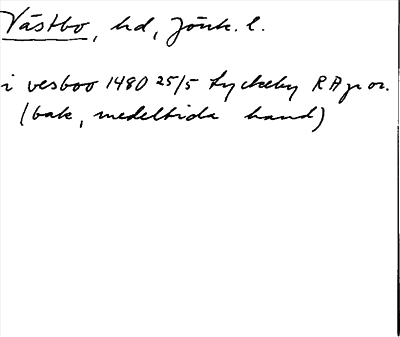 Västbo, hd, Jönk. l.
i vesboo 1480 25/5 Lyckeby RAp or.
(bak, medeltida hand)